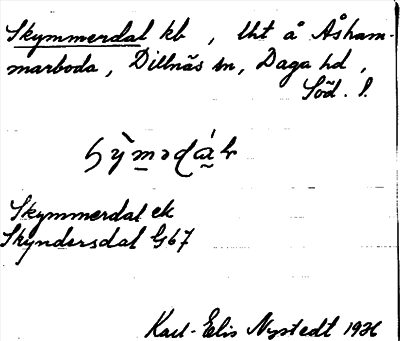 Skymmerdal kb, lht å Åsham-
marboda, Dillnäs sn, Daga hd,
Söd. l.
Skymmerdal ek
Skyndersdal G67
Karl-Elis Nystedt 1936